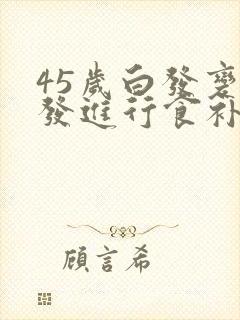 45歲白發變
發進行食补
顧言希